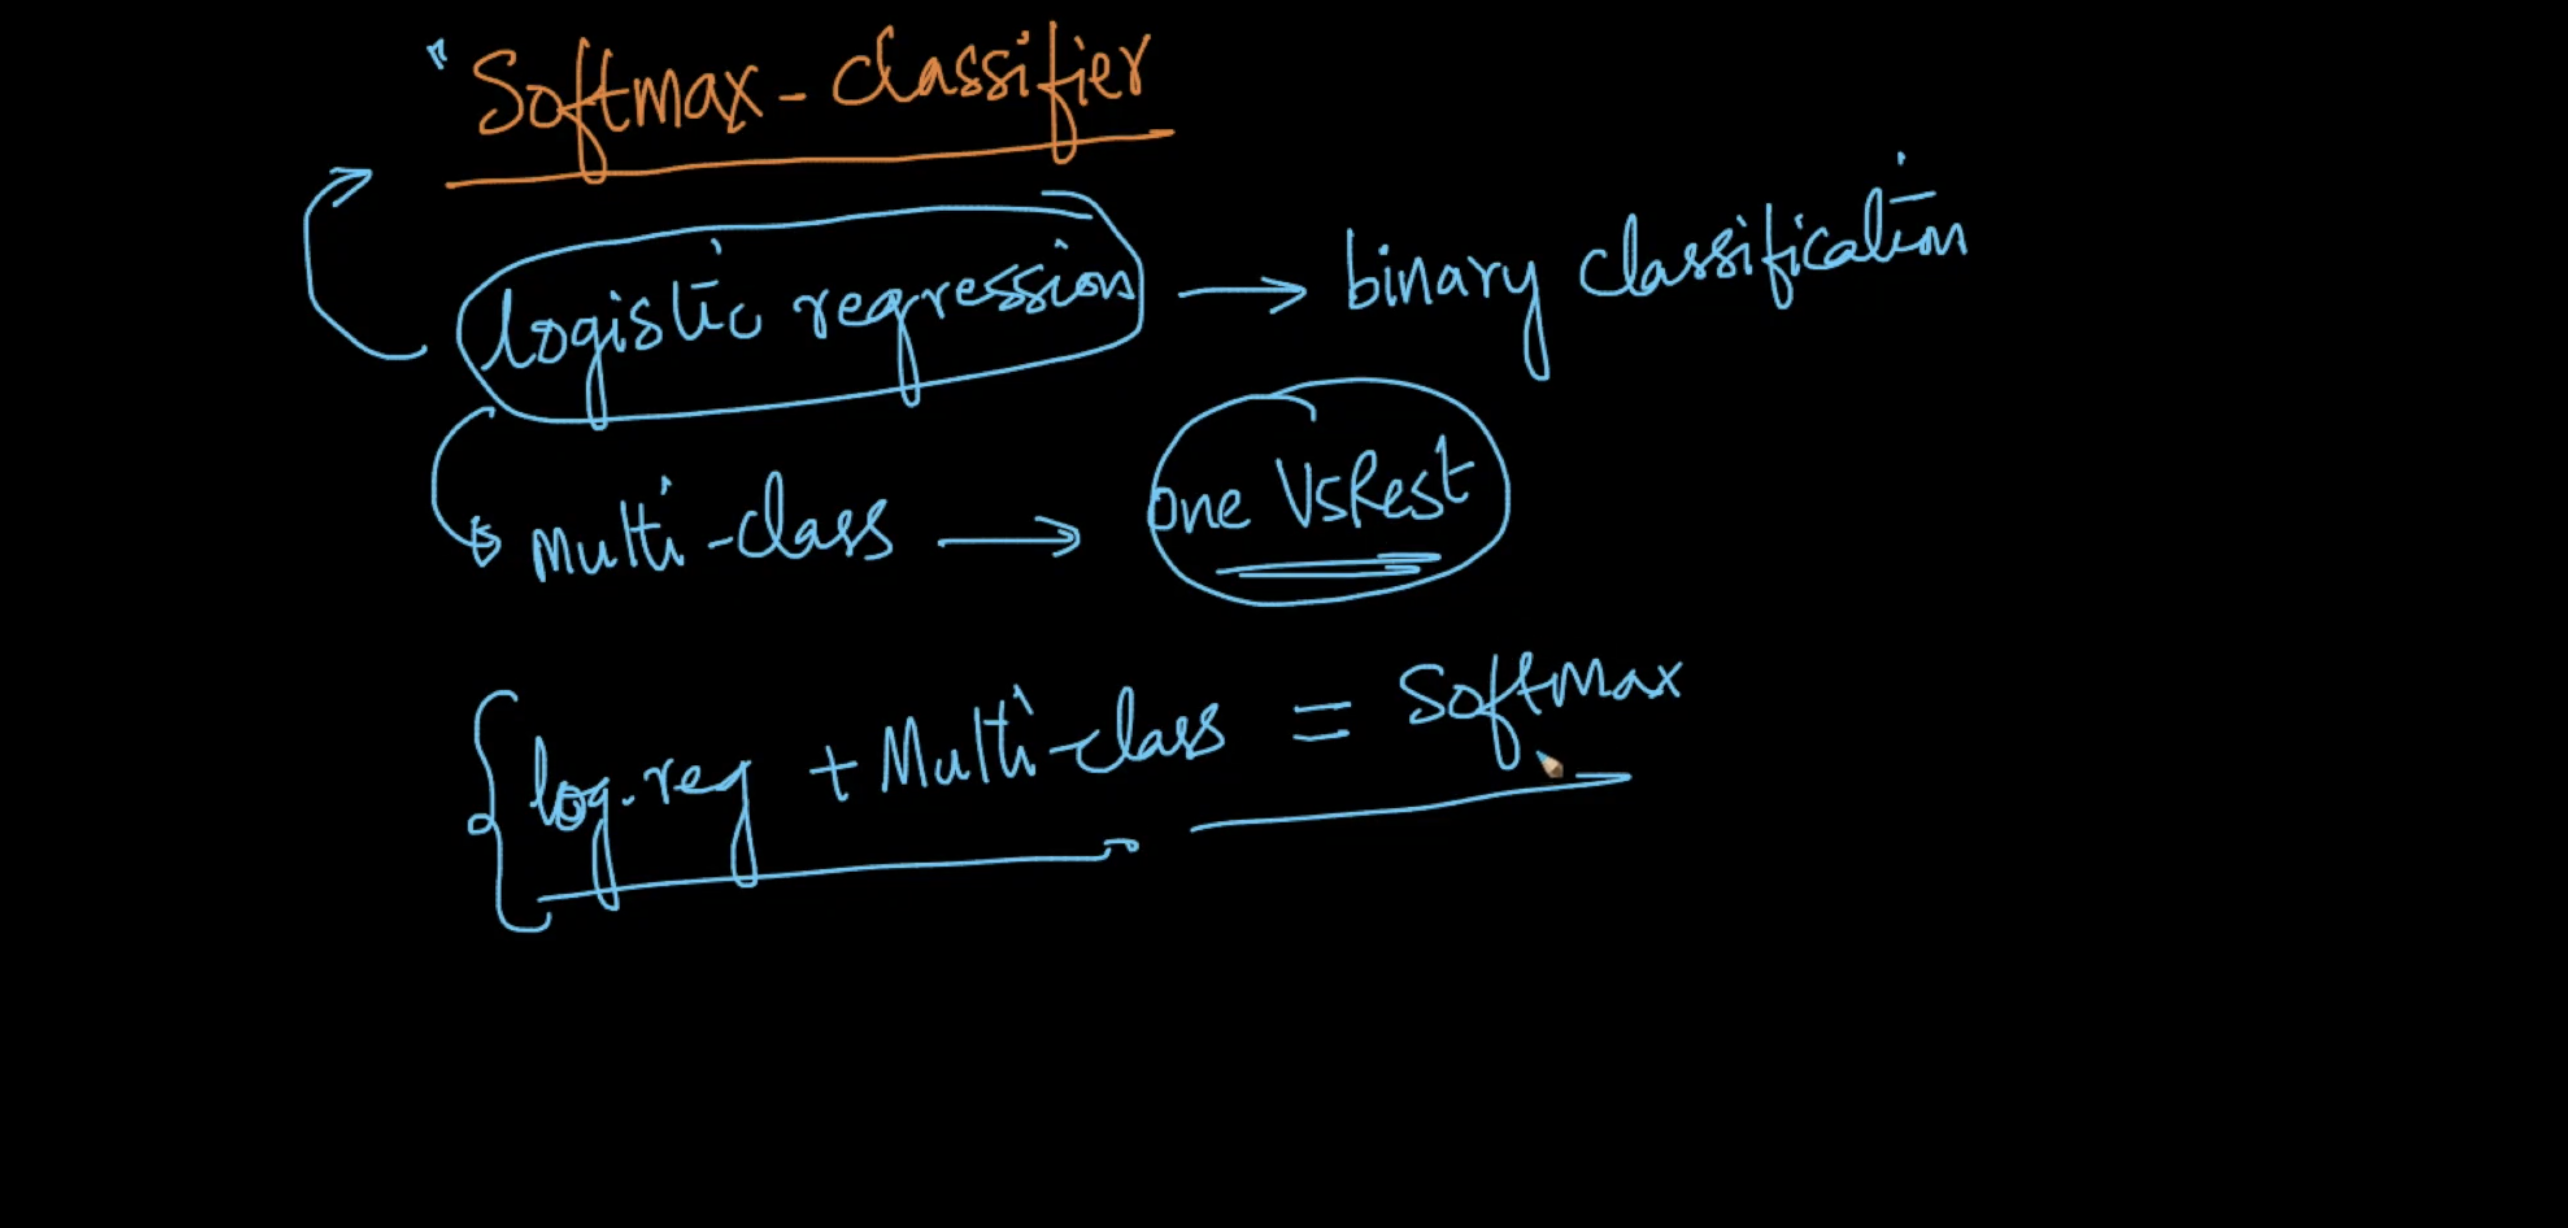 Softmax - classifier
logistic regression → binary classification
multi-class → one Vs Rest
log.reg + Multi-class = SoftMax